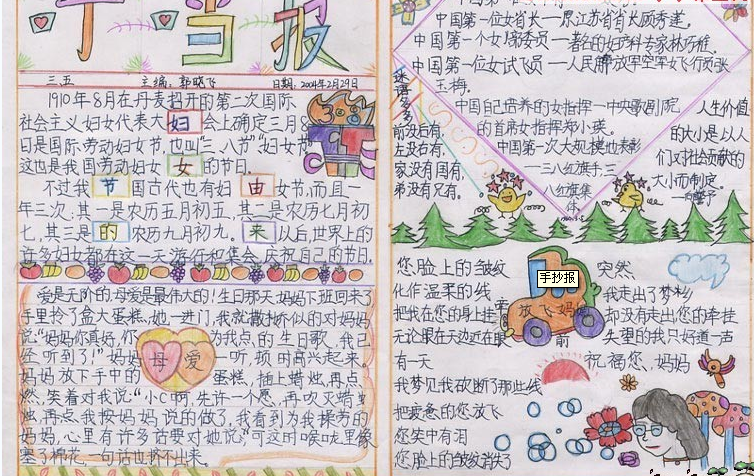 手抄报
三五 主编：郭晓飞 日期：2004年2月29日
1910年8月在丹麦招开的第二次国际
社会主义妇女代表大 妇 会上确定三月8
日是国际劳动妇女节，也叫“三八节”“妇女节”
这也是我国劳动妇女 女 的节日.
不过我 节 国古代也有妇 由 女节，而且一
年三次：其一是农历五月初五，其二是农历七月初
七，其三是 的 农历九月初九。 来 以后，世界上的
许多妇女都在这一天游行和集会，庆祝自己的节日.
爱是无阶的，母爱是最伟大的！生日那天，妈妈下班回来了
手里拎了盒大蛋糕，她一进门，我就撒娇似的对妈妈
说：“妈妈你真好，你 为我点的，生日歌，我已
经听到了！”妈妈 母爱 一听，顿时高兴起来。
妈妈放下手中的 蛋糕，插上蜡烛，再点
燃，笑着对我说：“小C啊，先许一个愿，再吹灭蜡
烛，再点，我按妈妈说的做了，我看到为我操劳的
妈妈，心里有许多话要对她说。”可这时喉咙里像
塞了棉花，一句话也挤不出来。
中国第一位女省长—原江苏省省长顾秀莲。
中国第一个女
委员—著名的妇产科专家林巧稚。
中国第一位女试飞员—人民解放军空军女飞行员张
玉梅。
中国自己培养的女指挥—中央歌剧院
的首席女指挥郑小英。
中国第一次大规模也表彰
—三八红旗手，三
八红旗集
体
谜语多多
前没后有，
左没右有，
家没有国有，
弟没有兄有。
人生价值
的大小是以人
们对社会贡献的
大小而制定。
您，脸上的皱纹
化作温柔的线
把我在您的身上挂
无论眼在天边近在眼前
有一天
我梦见我砍断了那些线
把疲惫的您，放飞
您笑中有泪
您，脸上的皱纹消失了
手抄报
放飞妈妈
突然，
我走出了梦乡
却没有走出，您的牵挂
失望的我只好道一声
祝福您，妈妈